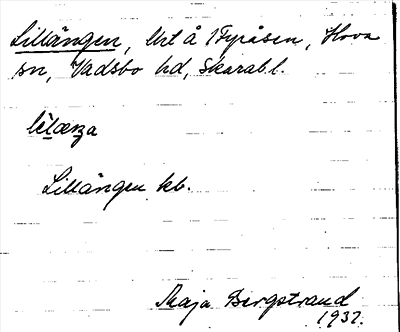 Lillängen, lht å 1 Fyråsen, Hova
sn, Vadsbo hd, Skarab.l.
Lillängen kb.
Maja Bergstrand
1937.